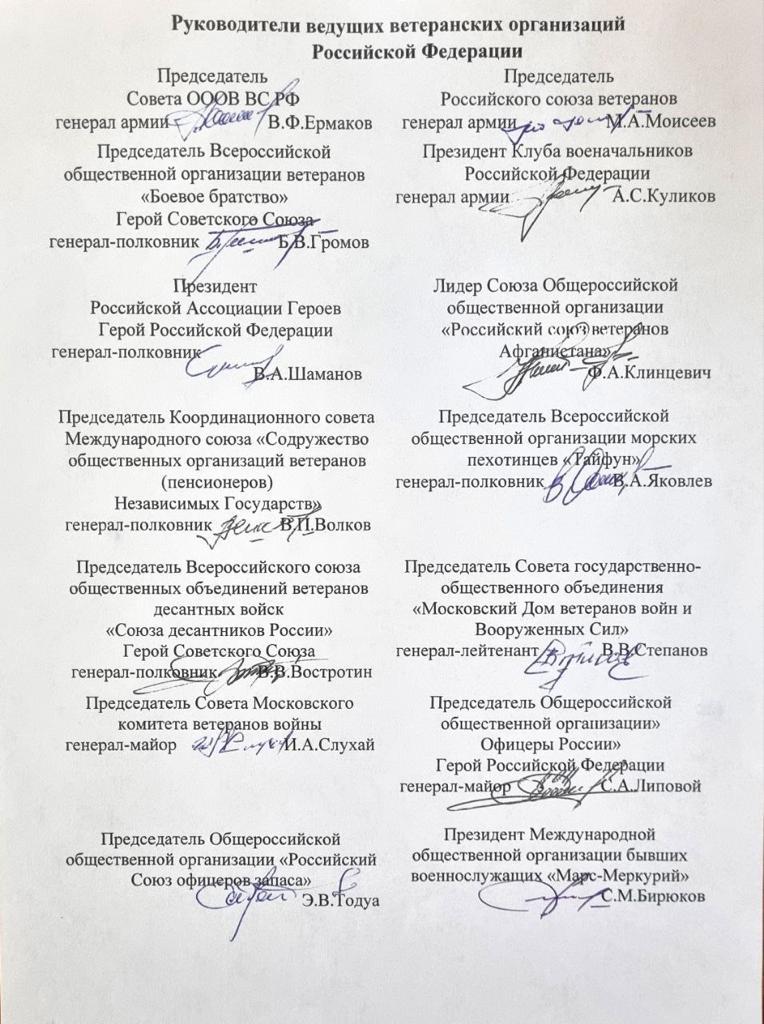 Руководители ведущих ветеранских организаций
Российской Федерации
Председатель
Совета ОООВ ВС РФ
генерал армии В.Ф.Ермаков
Председатель
Российского союза ветеранов
генерал армии М.А.Моисеев
Председатель Всероссийской
общественной организации ветеранов
«Боевое братство»
Герой Советского Союза
генерал-полковник Б.В.Громов
Президент Клуба военачальников
Российской Федерации
генерал армии А.С.Куликов
Президент
Российской Ассоциации Героев
Герой Российской Федерации
генерал-полковник
В.А.Шаманов
Лидер Союза Общероссийской
общественной организации
«Российский союз ветеранов
Афганистана»
Ф.А.Клинцевич
Председатель Координационного совета
Международного союза «Содружество
общественных организаций ветеранов
(пенсионеров)
Независимых Государств»
генерал-полковник В.П.Волков
Председатель Всероссийской
общественной организации морских
пехотинцев «Тайфун»
генерал-полковник В.А.Яковлев
Председатель Всероссийского союза
общественных объединений ветеранов
десантных войск
«Союза десантников России»
Герой Советского Союза
генерал-полковник В.В.Востротин
Председатель Совета государственно-
общественного объединения
«Московский Дом ветеранов войн и
Вооруженных Сил»
генерал-лейтенант В.В.Степанов
Председатель Совета Московского
комитета ветеранов войны
генерал-майор И.А.Слухай
Председатель Общероссийской
общественной организации»
Офицеры России»
Герой Российской Федерации
генерал-майор С.А.Липовой
Председатель Общероссийской
общественной организации «Российский
Союз офицеров запаса»
Э.В.Тодуа
Президент Международной
общественной организации бывших
военнослужащих «Марс-Меркурий»
С.М.Бирюков